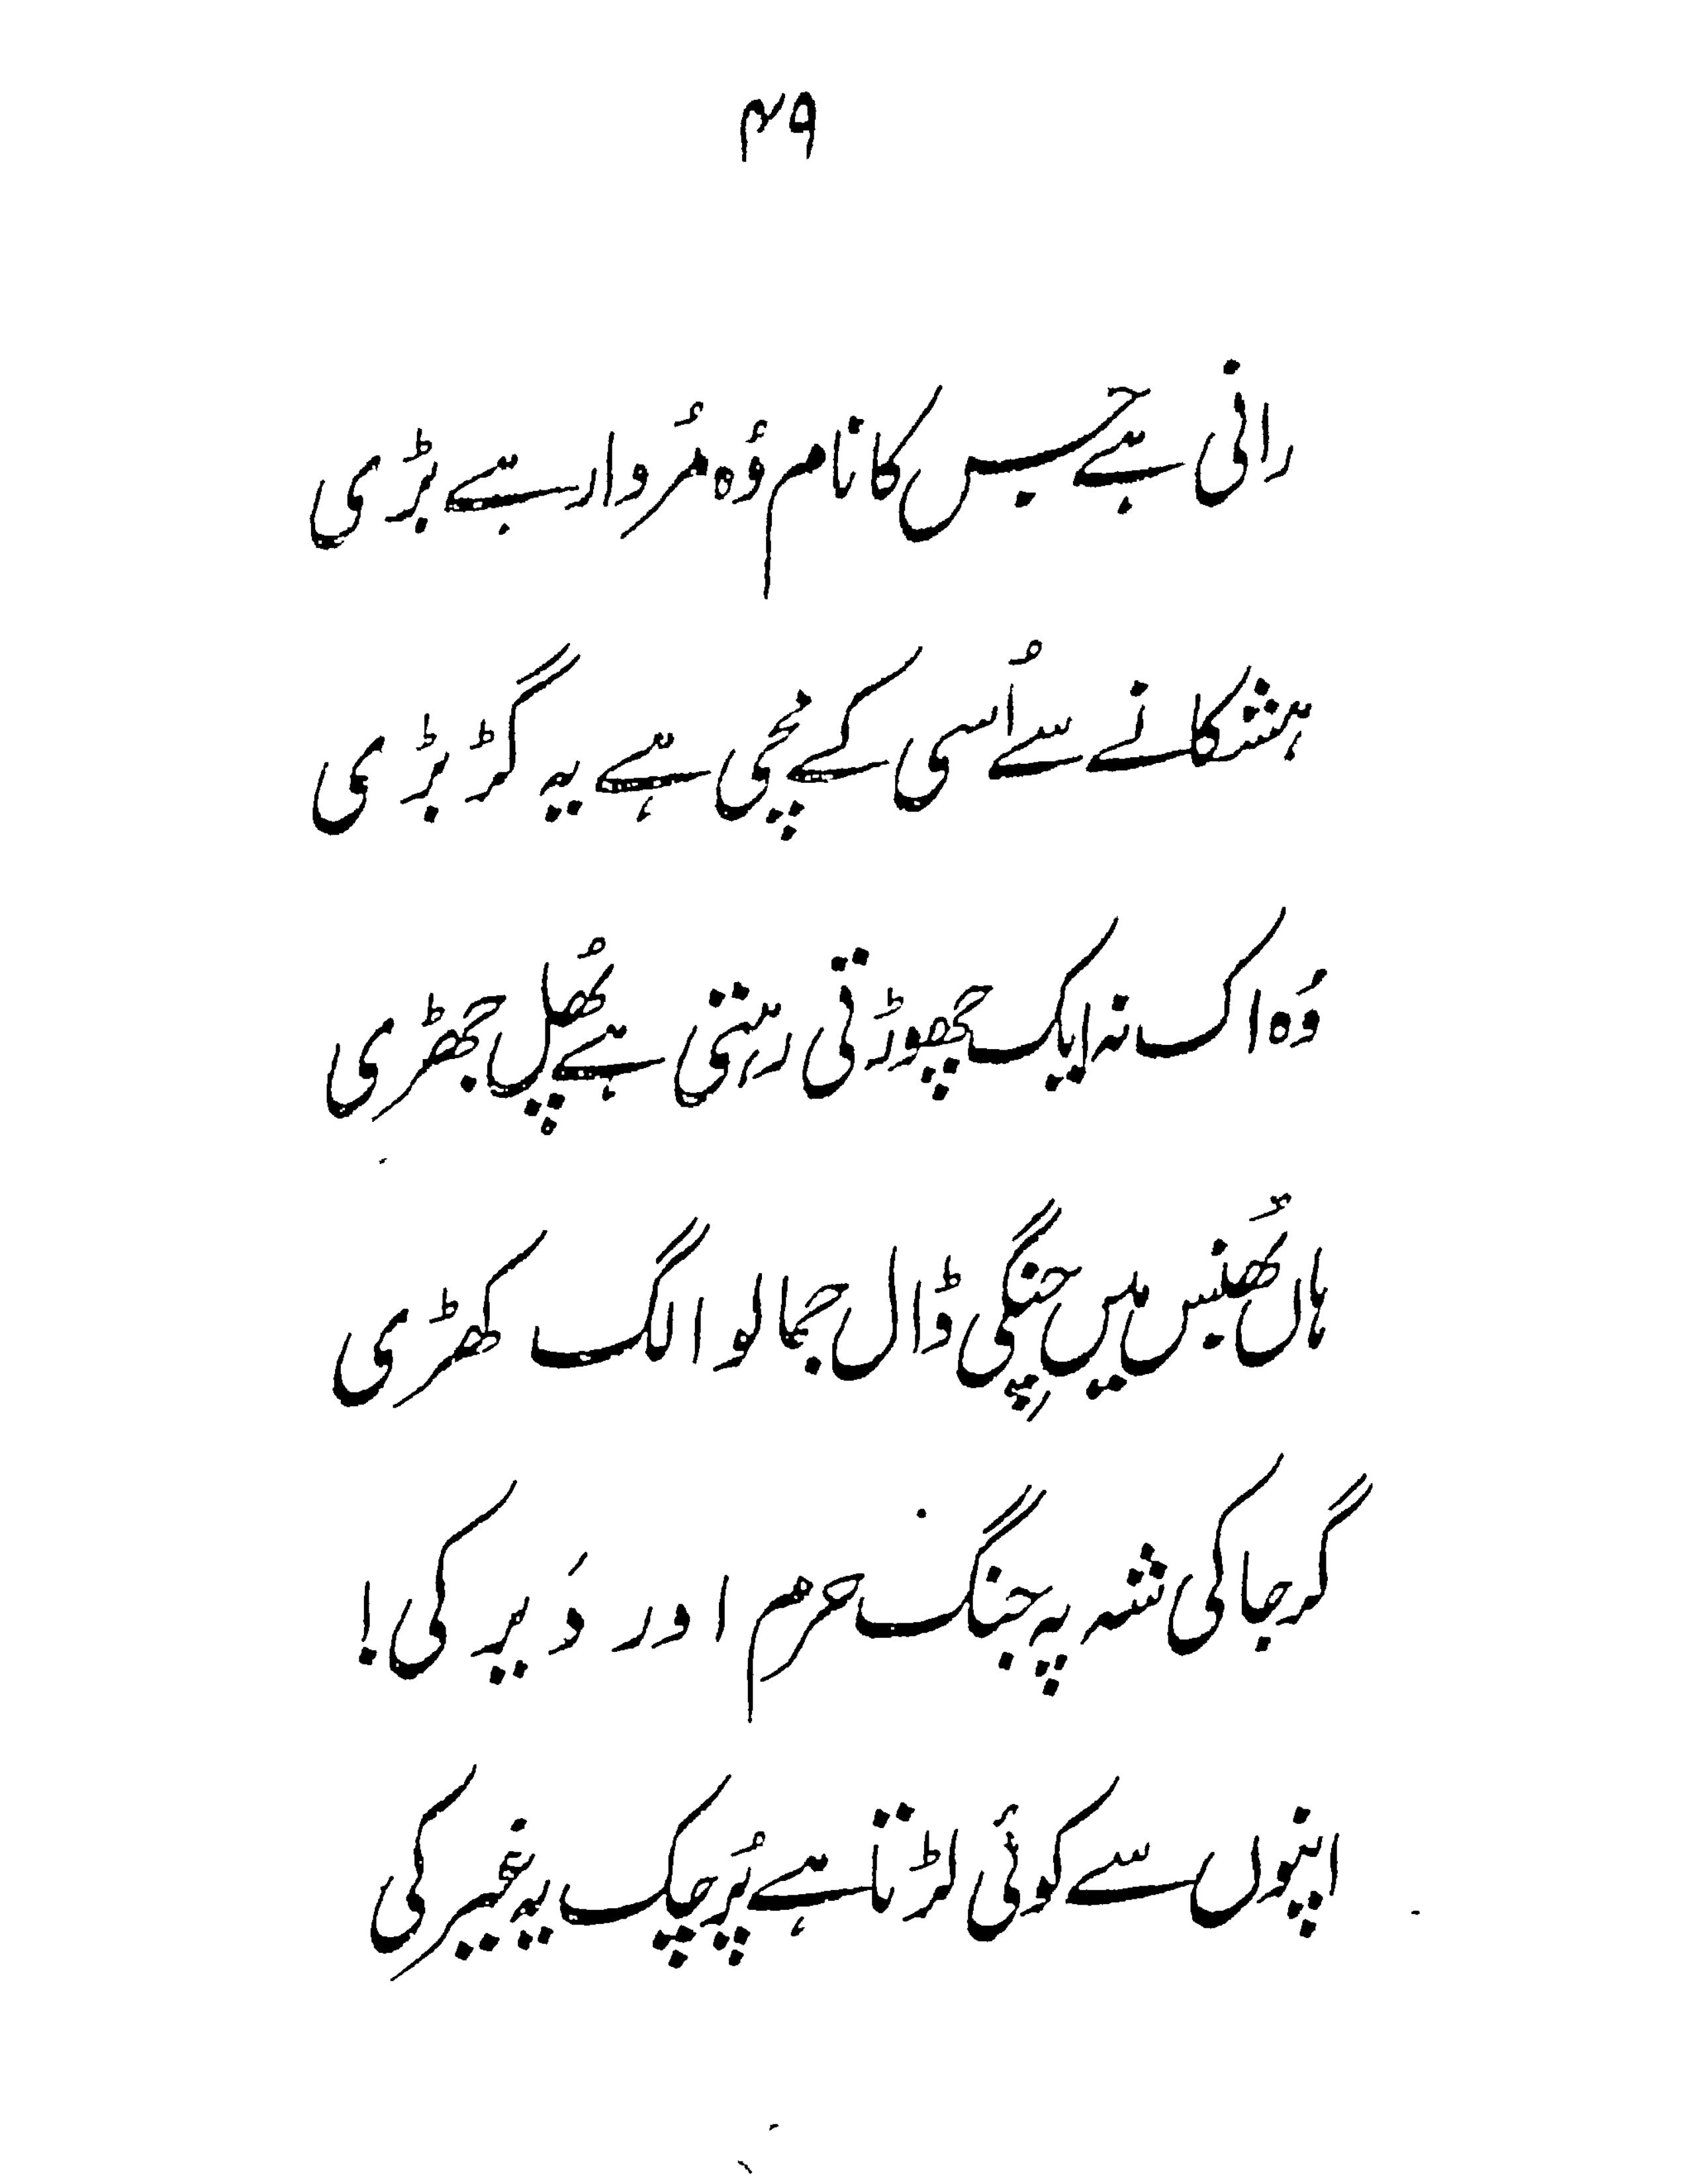 ۴۹
رانی ہے جس کا نام وُہ مُردار ہے بڑی
ہشکانے سے اُسی کے مچی ہے یہ گڑبڑی
وُہ اک نہ ایک چھوڑتی رہتی ہے پُھل جھڑی
ہاں بُھس میں چنگی ڈال جمالو الگ کھڑی
گرجا کی شہ پہ جنگ حرم اور دَیر کی!
اپنوں سے کوئی لڑتا ہے پُرچک پہ غیر کی